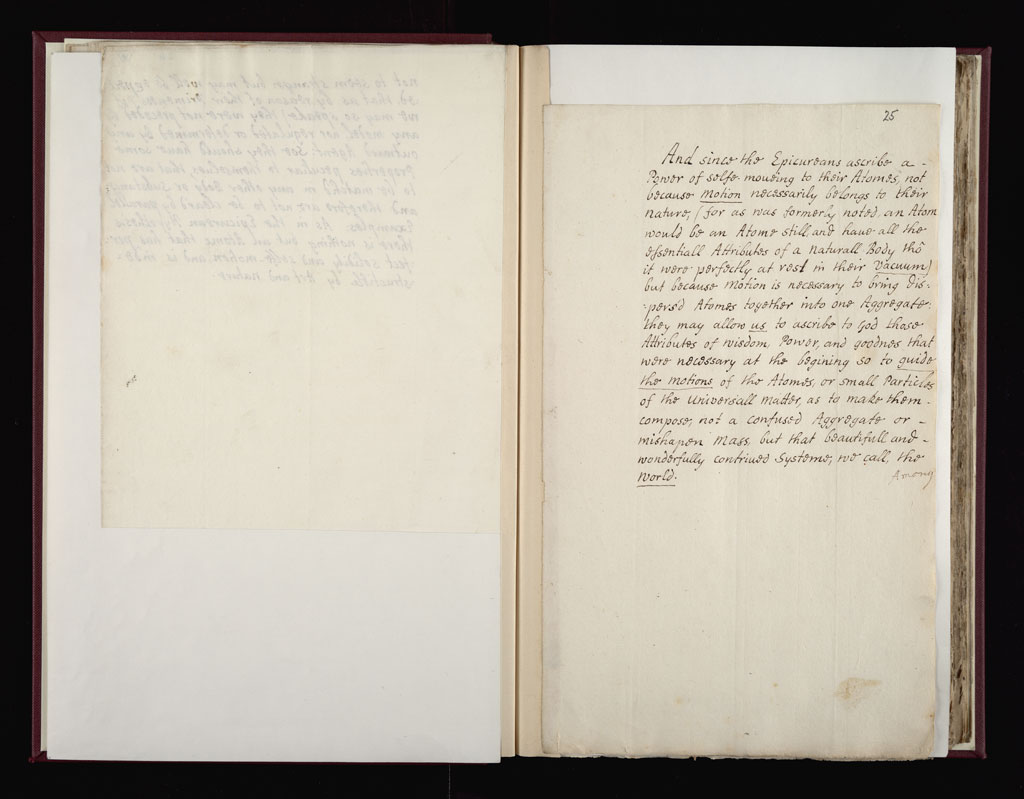 25
And since the Epicureans ascribe a -
Power of selfe-moueing to their Atomes, not
because Motion necessarily belongs to their
nature, (for as was formerly noted, an Atom
would be an Atome still, and have all the
essentiall Attributes of a naturall Body tho
it were perfectly at rest in their Vacuum)
but because Motion is necessary to bring dis-
-pers'd Atomes together into one Aggregate:
they may allow us to ascribe to God those
Attributes of wisdom, Power, and goodnes that
were necessary at the begining so to guide
the motions of the Atomes, or small Particles
of the Universall matter, as to make them -
compose, not a confused Aggregate or -
mishapen Mass, but that beautifull and -
wonderfully contriued Systeme, we call, the
World.
Among